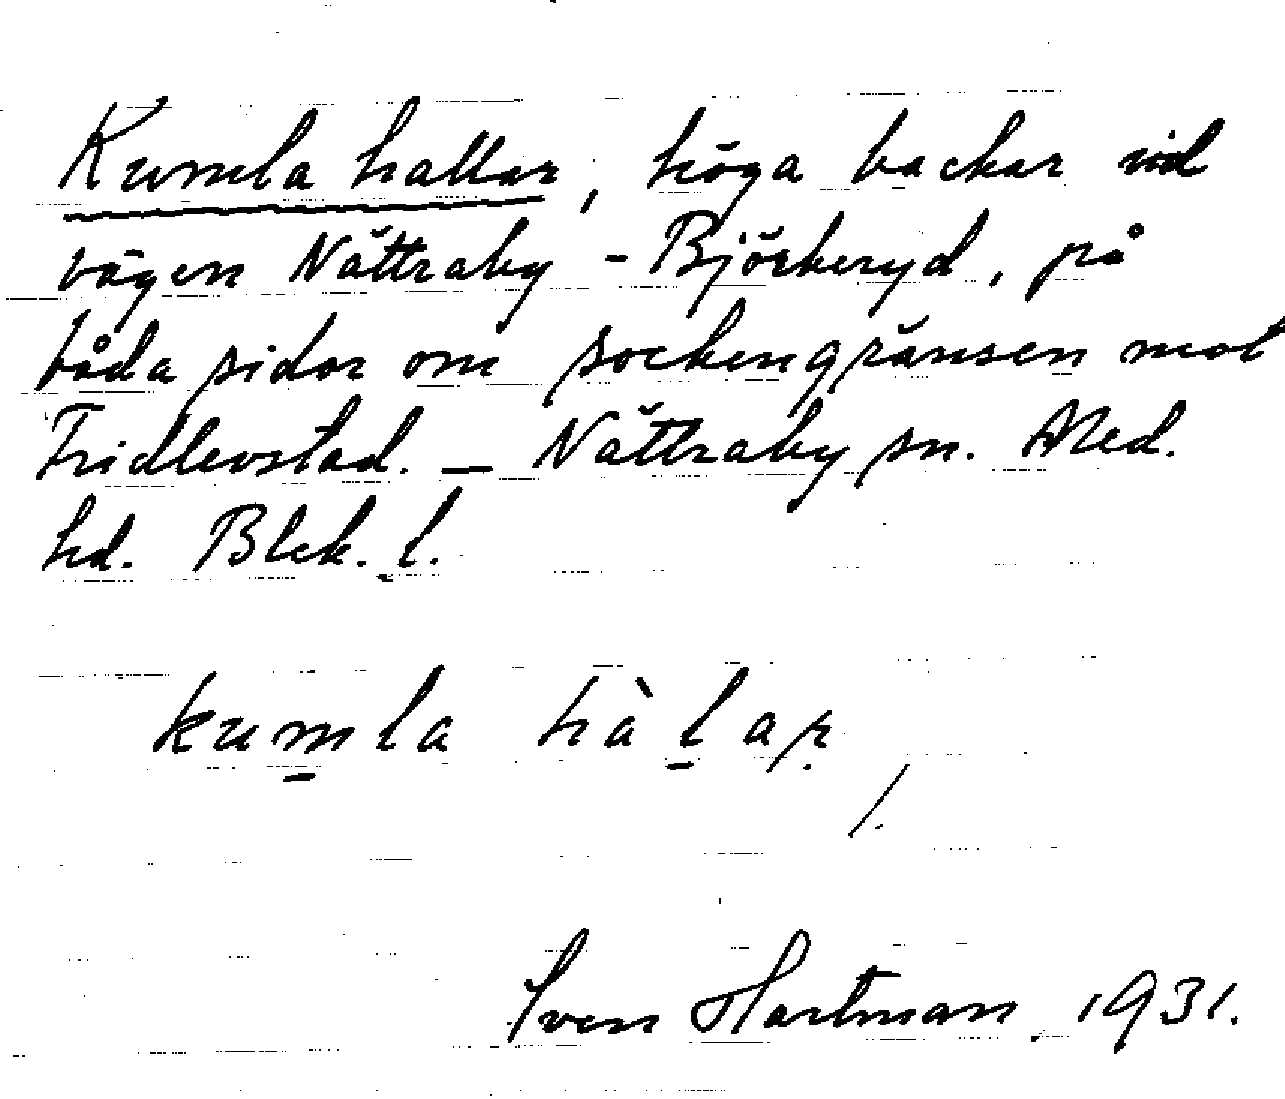 Kumla hallar, höga backar vid
vägen Nättraby - Björkeryd, på
båda sidor om sockengränsen mot
Fridlevstad. — Nättraby sn. Med.
hd. Blek. l.
kumla hàlar
Sven Hartman 1931.